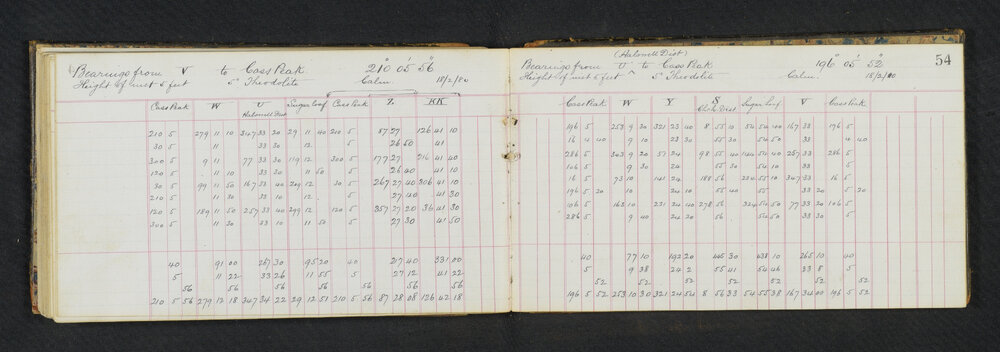 Bearings from V to Cass Peak. 210° 05' 56"
Height of inst 5 feet 5" Theodolite Calm 18/2/80
Cass Peak W U Sugar Loaf Cass Peak Z KK
Halswell Dist
210 5 279 11 10 347 33 20 29 11 40 210 5 87 27 126 41 10
30 5 11 33 30 12 5 26 50 41
300 5 9 11 77 33 30 119 12 300 5 177 27 216 41 40
120 5 11 10 33 30 11 50 5 26 40 41 10
30 5 99 11 50 167 33 40 209 12 30 5 267 27 40 306 41 10
210 5 11 30 33 10 12 5 27 40 41 30
120 5 189 11 50 257 33 40 299 12 120 5 357 27 20 36 41 30
300 5 11 20 33 10 11 50 5 27 30 41 50
40 91 00 267 30 95 20 40 217 40 331 00
5 11 22 33 26 11 55 5 27 12 41 22
56 56 56 56 56 56
210 5 56 279 12 18 347 34 22 29 12 51 210 5 56 87 28 08 126 42 18
54
(Halswell Dist)
Bearings from U to Cass Peak 196° 05' 52"
Height of inst 5 feet 5" Theodolite Calm. 18/2/80
Cass Peak W Y S Sugar Loaf V Cass Peak
ChCh Dist
196 5 253 9 30 321 23 40 8 55 10 54 54 00 167 33 196 5
16 4 40 9 10 23 30 55 30 54 50 33 4 40
286 5 343 9 30 51 24 98 55 40 144 54 40 257 33 286 5
106 5 9 30 24 55 30 54 10 33 5
16 5 73 10 141 24 188 56 234 55 10 347 33 16 5
196 5 20 10 24 10 55 40 55 33 20 5 20
106 5 163 10 231 24 40 278 56 324 54 50 77 33 20 106 5
286 5 9 40 24 20 56 54 50 33 30
40 77 10 192 20 445 30 438 10 265 10 40
5 9 38 24 2 55 41 54 46 33 8 5
52 52 52 52 52 52 52
196 5 52 253 10 30 321 24 54 8 56 33 54 55 38 167 34 00 196 5 52